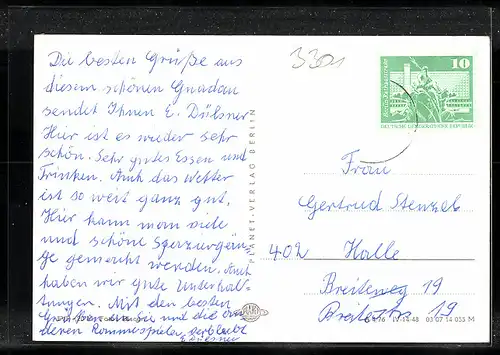 Die besten Grüße aus
diesem schönen Gnadau
sendet Ihnen E. Dülsner
Hier ist es wieder sehr
schön. Sehr gutes Essen und
Trinken. Auch das Wetter
ist so weit ganz gut.
Hier kann man viele
und schöne Spaziergän-
ge gemacht werden. Auch
haben wir gute Unterhal-
tungen. Mit den besten
Grüßen an Sie und die an-
deren Rommespieler verbleibt
E. Dülsner
PLANET-VERLAG BERLIN
3301
10
DEUTSCHE DEMOKRATISCHE REPUBLIK
Frau
Gertrud Stenzel
402 Halle
Breiteweg 19
Breitestr 19
IV-14-48 03 07 14 035 M